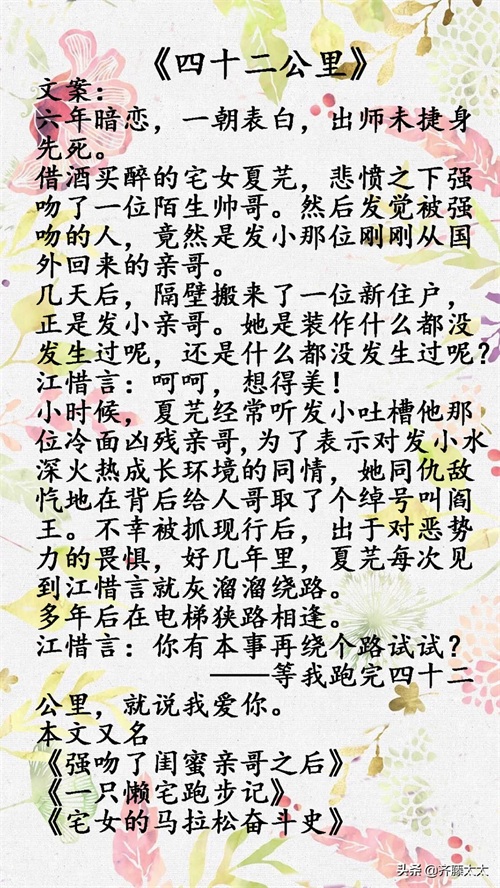 《四十二公里》
文案：
六年暗恋，一朝表白，出师未捷身
先死。
借酒买醉的宅女夏芫，悲愤之下强
吻了一位陌生帅哥。然后发觉被强
吻的人，竟然是发小那位刚刚从国
外回来的亲哥。
几天后，隔壁搬来了一位新住户，
正是发小亲哥。她是装作什么都没
发生过呢，还是什么都没发生过呢？
江惜言：呵呵，想得美！
小时候，夏芫经常听发小吐槽他那
位冷面凶残亲哥,为了表示对发小水
深火热成长环境的同情，她同仇敌
忾地在背后给人哥取了个绰号叫阎
王。不幸被抓现行后，出于对恶势
力的畏惧，好几年里，夏芫每次见
到江惜言就灰溜溜绕路。
多年后在电梯狭路相逢。
江惜言：你有本事再绕个路试试？
——等我跑完四十二
公里，就说我爱你。
本文又名
《强吻了闺蜜亲哥之后》
《一只懒宅跑步记》
《宅女的马拉松奋斗史》
头条 @齐滕太太